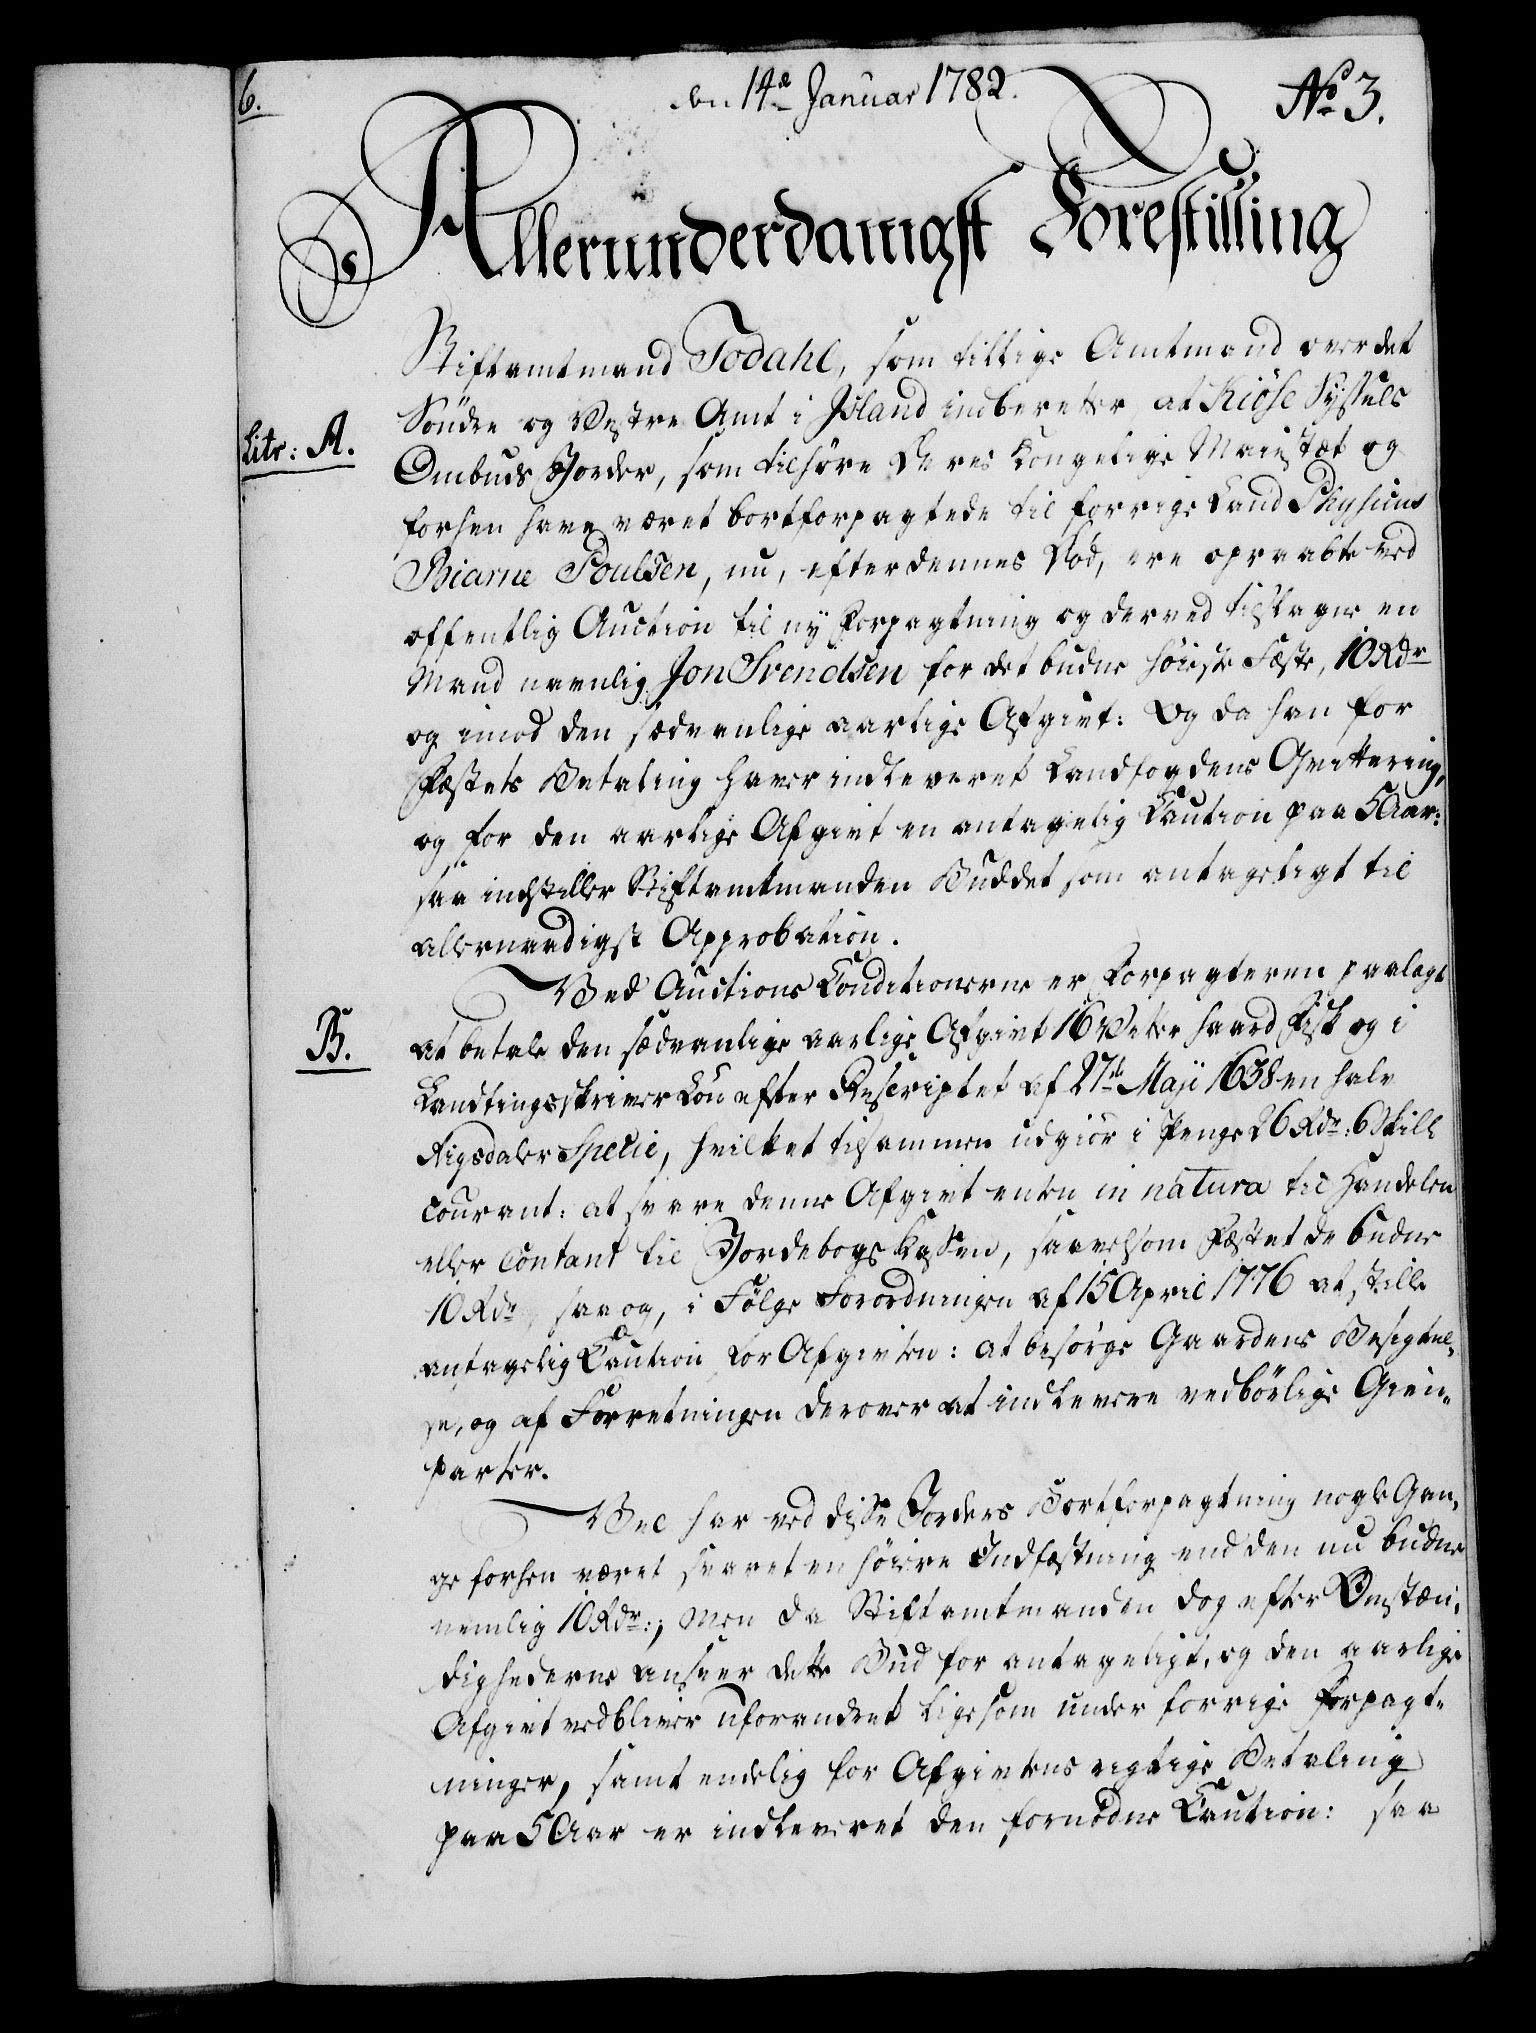 6.
den 14de Januar 1782.
No 3.
Allerunderdanigst Forestilling
Stiftamtmand Todahl, som tillige Amtmand over det
Söndre og Vestre Amt i Island indberetter, at Kiöse Syssels
Litr: A.
Ombuds Jorder, som tilhöre Deres Kongelige Maiestæt og
forhen have været bortforpagtede til forrige Land Physicus
Biarne Poulsen, nu, efter dennes Död, ere opraabte ved
offentlig Auction til ny Forpagtning og derved tilslagne en
Mand navnlig Jon Svendsen for det budne höieste Fæste, 10 Rdr
og imod den sædvanlige aarlige Afgivt: Og da han for
Fæstets Betaling haver indleveret Landfogdens Qvittering,
og for den aarlige Afgivt en antagelig Caution paa 5 Aar:
saa indstiller Stiftamtmanden Buddet som antageligt til
allernaadigst Approbation.
Ved Auctions Conditionerne er Forpagteren paalagt
B.
at betale den sædvanlige aarlige Afgivt 16 Vetter haard Fisk og i
Landtingsskriver Lön efter Rescriptet af 27de Maji 1638 en halv
Rigsdaler Specie, hvilket tilsammen udgiör i Penge 26 Rdr: 6 Skill
Courant: at svare denne Afgivt enten in natura til Handelen
eller Contant til Jordebogs Kassen, saavelsom Fæstet de budne
10 Rdr, saa og, i Fölge Forordningen af 15 April 1776 at stille
antagelig Caution for Afgivten: at besörge Gaardens Besigtel-
se, og af Forretningen derover at indlevere vedbörlige Gien-
parter.
Vel har ved disse Jorders Bortforpagtning nogle Gan-
ge forhen været svaret en höiere Indfæstning end den nu budne
nemlig 10 Rdr:; Men da Stiftamtmanden dog efter Omstæn-
dighederne anseer dette Bud for antageligt, og den aarlige
Afgivt vedbliver uforandret ligesom under forrige Forpagt-
ninger, samt endelig for Afgivtens rigtige Betaling
paa 5 Aar er indleveret den fornödne Caution: saa